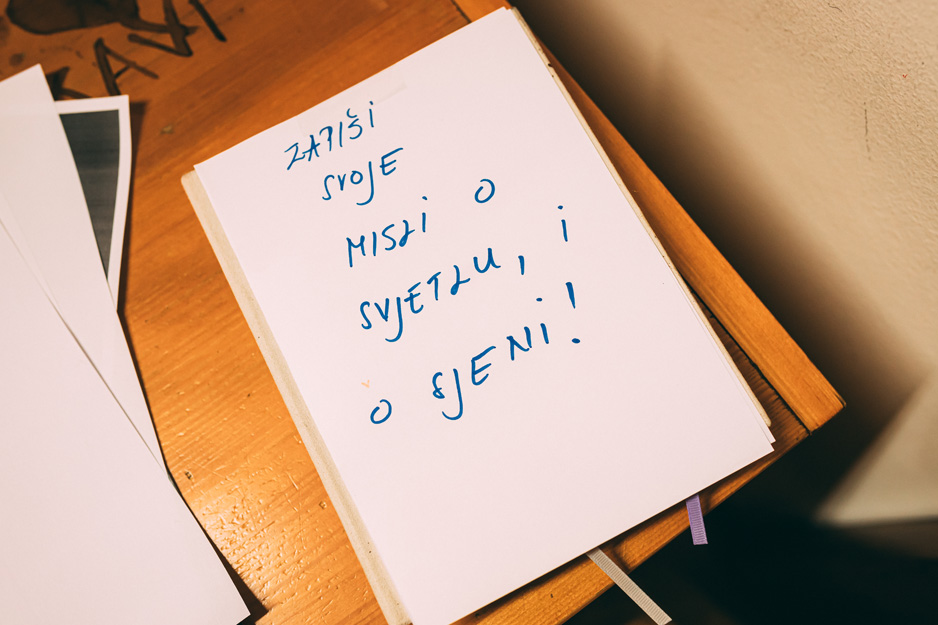 ZAPIŠi
SVOJE
MISLi O
SVJETLU, i
O SJENi!